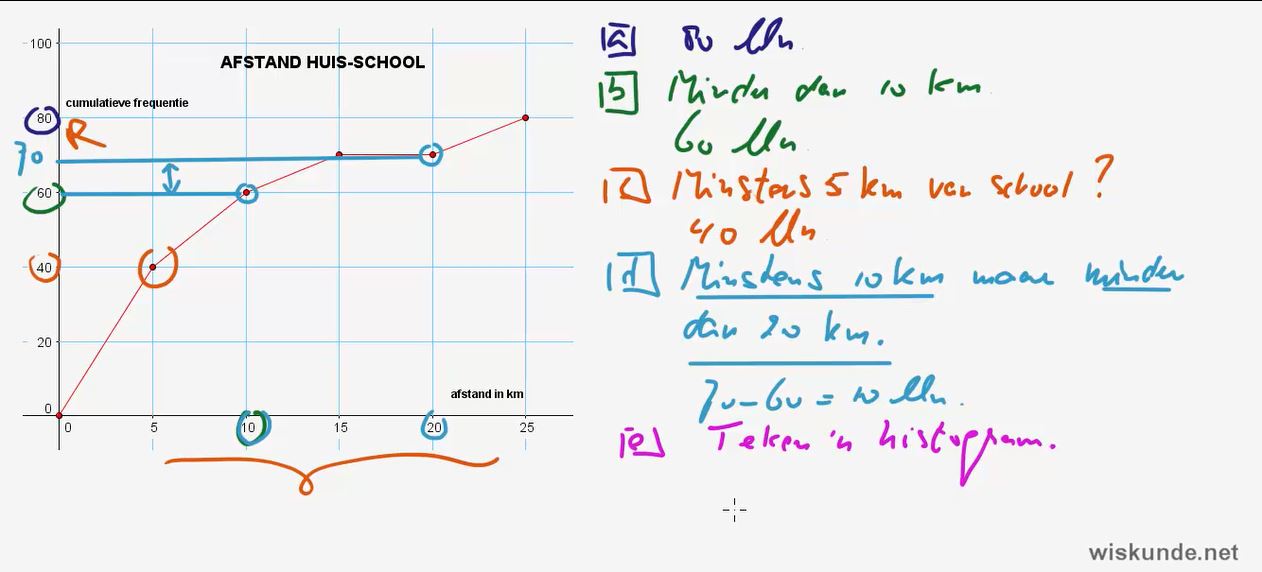 AFSTAND HUIS-SCHOOL
cumulatieve frequentie
100
80
R
70
60
40
20
0
afstand in km
0 5 10 15 20 25
a 80 lln
b Minder dan 10 km
60 lln
c Minstens 5 km van school ?
40 lln
d Minstens 10 km maar minder
dan 20 km.
70-60 = 10 lln.
e Teken 'n histogram.
wiskunde.net